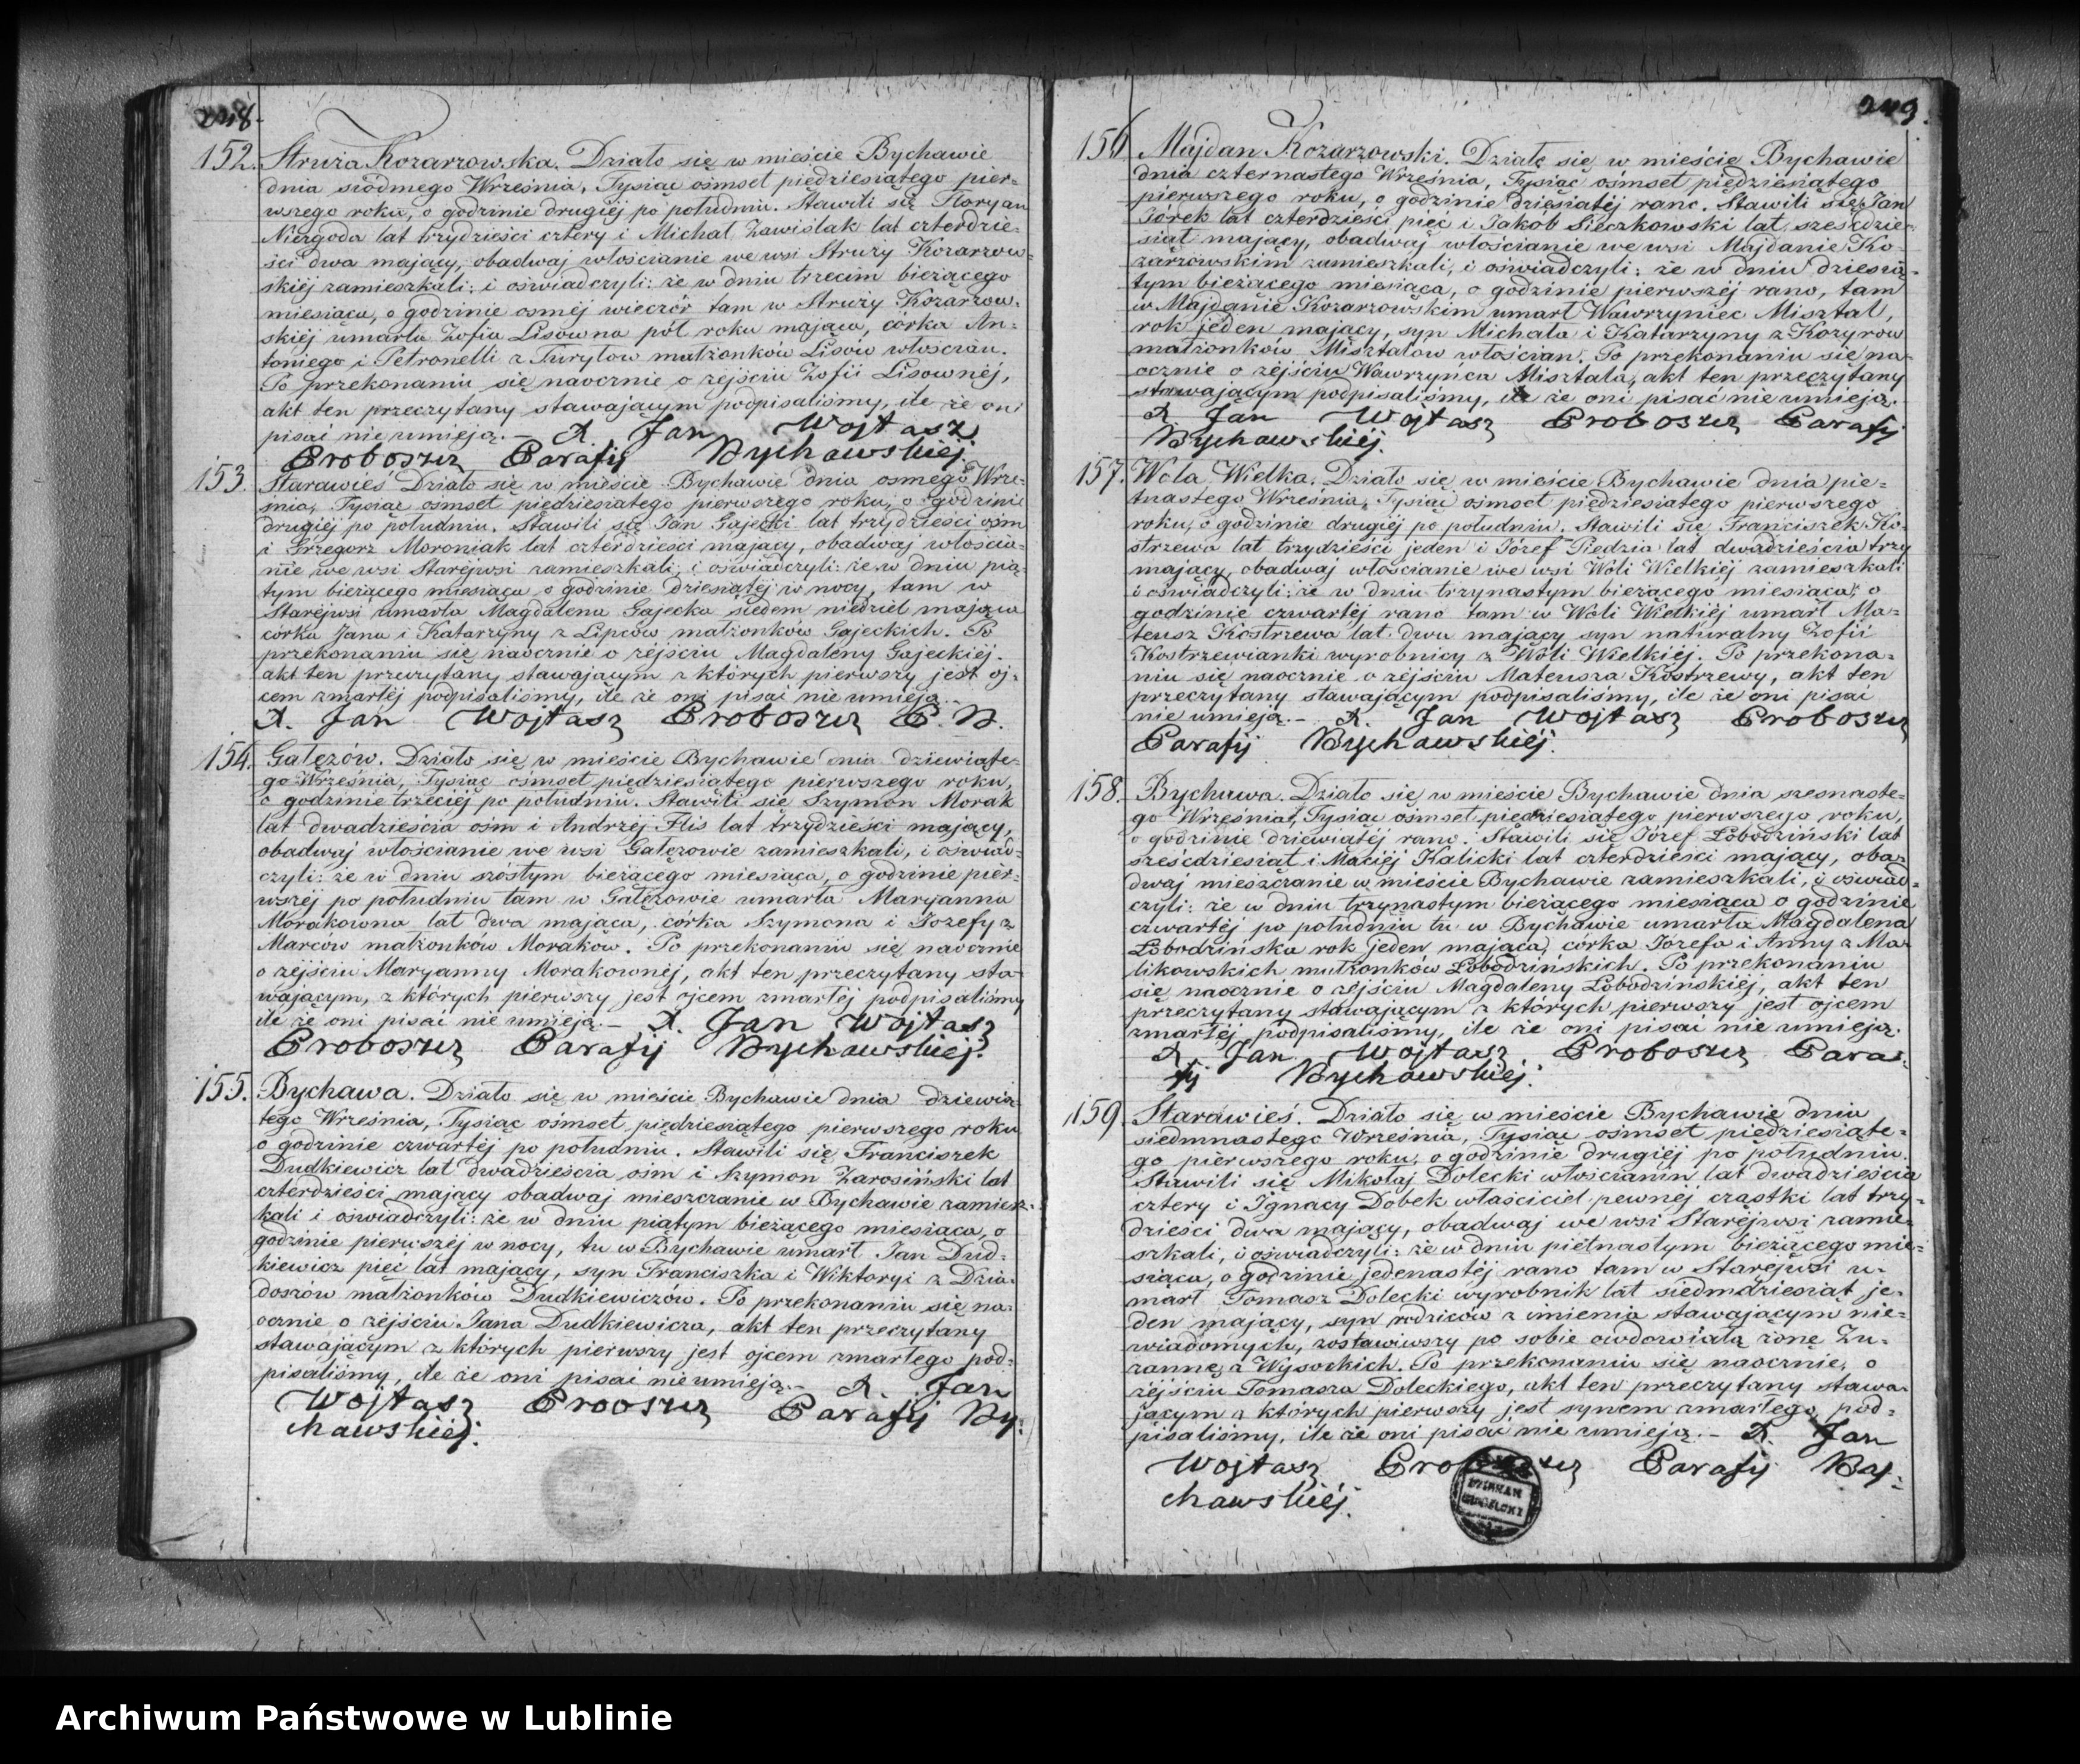 248.
152. Struża Kozarzowska. Działo się w mieście Bychawie
dnia siódmego Września, Tysiąc ośmset piędziesiątego pier=
wszego roku, o godzinie drugiéj po południu. Stawili się Floryan
Niezgoda lat trzydzieści cztery i Michał Zawiślak lat czterdzie=
ści dwa mający, obadwaj włościanie we wsi Struży Kozarzow=
skiéj zamieszkali; i oświadczyli: że w dniu trzecim bieżącego
miesiąca, o godzinie ósméj wieczór tam w Struży Kozarzow=
skiéj umarła Zofia Lisowna pół roku mająca, córka An=
toniego i Petronelli z Turyłow małżonków Lisów włościan.
Po przekonaniu się naocznie o zejściu Zofii Lisownéj,
akt ten przeczytany stawającym podpisaliśmy, ile że oni
pisać nie umieją. – X. Jan Wojtasz
Proboszcz Parafij Bychawskiéj.
153. Starawieś Działo się w mieście Bychawie dnia osmego Wrze=
śnia, Tysiąc ośmset piędziesiatego pierwszego roku, o godzinie
drugiéj po południu. Stawili się Jan Gajecki lat trzydzieści ośm
i Grzegorz Moroniak lat czterdzieści mający, obadwaj włościa=
nie we wsi Staréjwsi zamieszkali; i oświadczyli: że w dniu pią=
tym bieżącego miesiąca o godzinie dziesiątéj w nocy, tam w
Staréjwsi umarła Magdalena Gajecka siedem niedziel mająca
córka Jana i Katarzyny z Lipców małżonków Gajeckich. Po
przekonaniu się naocznie o zéjściu Magdaleny Gajeckiéj.
akt ten przeczytany stawającym z których pierwszy jest oj=
cem zmarłéj podpisaliśmy, ile że oni pisać nie umieją.–
X. Jan Wojtasz Proboszcz P. B.
154. Gałęzów. Działo się w mieście Bychawie dnia dziewiąte=
go Września, Tysiąc ośmset piędziesiątego pierwszego roku,
o godzinie trzeciéj po południu. Stawili się Szymon Morak
lat dwadzieścia ośm i Andrzéj Flis lat trzydzieści mający,
obadwaj włościanie we wsi Gałęzowie zamieszkali, i oświad=
czyli: że w dniu szóstym bieżącego miesiąca, o godzinie piér=
wszéj po południu tam w Gałęzowie umarła Maryanna
Morakowna lat dwa mająca, córka Szymona i Jozefy z
Marców małżonków Moraków. Po przekonaniu się naocznie
o zéjściu Maryanny Morakownéj, akt ten przeczytany sta=
wającym, z których pierwszy jest ojcem zmarłéj podpisaliśmy
ile że oni pisać nie umieją.– X. Jan Wojtasz
Proboszcz Parafij Bychawskiéj.
155. Bychawa. Działo się w mieście Bychawie dnia dziewią=
tego Września, Tysiąc ośmset piędziesiątego pierwszego roku
o godzinie czwartéj po południu. Stawili się Franciszek
Dudkiewicz lat dwadzieścia ośm i Szymon Zarosiński lat
czterdzieści mający obadwaj mieszczanie w Bychawie zamiesz=
kali i oświadczyli: że w dniu piątym bieżącego miesiąca, o
godzinie pierwszéj w nocy, tu w Bychawie umarł Jan Dud=
kiewicz pięć lat mający, syn Franciszka i Wiktoryi z Dzia=
doszów małżonków Dudkiewiczow. Po przekonaniu się na=
ocznie o zéjściu Jana Dudkiewicza, akt ten przeczytany
stawającym z których pierwszy jest ojcem zmarłego pod=
pisaliśmy, ile że oni pisać nie umieją.– X. Jan
Wojtasz Prooszcz Parafij By:
chawskiéj.
249.
156 Majdan Kozarzowski. Działo się w mieście Bychawie
dnia czternastego Września, Tysiąc ośmset piędziesiątego
pierwszego roku, o godzinie dziesiątéj rano. Stawili się Jan
lat czterdzieści pięć i Jakób Sieczkowski lat sześćdzie=
siąt mający, obadwaj włościanie we wsi Majdanie Ko=
zarzowskim zamieszkali, i oświadczyli: że w dniu dziesią=
tym bieżącego miesiąca, o godzinie pierwszéj rano, tam
w Majdanie Kozarzowskim umarł Wawrzyniec Misztal,
rok jeden mający, syn Michała i Katarzyny z Kozyrow
małżonków Misztalow włościan. Po przekonaniu się na=
ocznie o zéjściu Wawrzyńca Misztala, akt ten przeczytany
stawającym podpisaliśmy, ile że oni pisać nie umieją.
X Jan Wojtasz Proboszcz Parafij
Bychawskiéj.
157. Wola Wielka. Działo się w mieście Bychawie dnia pię=
tnastego Września, Tysiąc ośmset piędziesiątego pierwszego
roku, o godzinie drugiéj po południu. Stawili się Franciszek Ko=
strzewa lat trzydzieści jeden i Józef Piedzia lat dwadzieścia trzy
mający, obadwaj włościanie we wsi Woli Wielkiéj zamieszkali
i oświadczyli; że w dniu trzynastym bieżącego miesiąca, o
godzinie czwartéj rano tam w Woli Wielkiéj umarł Ma=
teusz Kostrzewa lat dwa mający syn naturalny Zofii
Kostrzewianki wyrobnicy z Woli Wielkiéj. Po przekona=
niu się naocznie o zejściu Mateusza Kostrzewy, akt ten
przeczytany stawającym podpisaliśmy, ile że oni pisać
nie umieją.– X. Jan Wojtasz Proboszcz
Parafij Bychawskiéj.
158. Bychawa. Działo się w mieście Bychawie dnia szesnaste=
go Września, Tysiąc ośmset piędziesiątego pierwszego roku,
o godzinie dziewiątéj rano. Stawili się Józef Łobodziński lat
sześćdziesiąt i Maciéj Kalicki lat czterdzieści mający, oba=
dwaj mieszczanie w mieście Bychawie zamieszkali, i oświad=
czyli: że w dniu trzynastym bieżącego miesiąca o godzinie
czwartéj po południu tu w Bychawie umarła Magdalena
Łobodzińska rok jeden mająca, córka Józefa i Anny z Ma=
likowskich małżonków Łobodzińskich. Po przekonaniu
się naocznie o zejściu Magdaleny Łobodzińskiéj, akt ten
przeczytany stawającym z których pierwszy jest ojcem
zmarłéj podpisaliśmy, ile że oni pisać nie umieją.
X. Jan Wojtasz Proboszcz Para=
fij Bychawskiéj.
159. Starawieś. Działo się w mieście Bychawie dnia
siedmnastego Września, Tysiąc ośmset piędziesiąte=
go pierwszego roku, o godzinie drugiéj po południu.
Stawili się Mikołaj Dolecki włościanin lat dwadzieścia
cztery i Ignacy Dobek właściciel pewnej cząstki lat trzy=
dzieści dwa mający, obadwaj we wsi Staréjwsi zamie=
szkali, i oświadczyli: że w dniu piętnastym bieżącego mie=
siąca, o godzinie jedenastéj rano tam w Staréjwsi u=
marł Tomasz Dolecki wyrobnik lat siedmdziesiąt je=
den mający, syn rodziców z imienia stawającym nie=
wiadomych, zostawiwszy po sobie owdowiałą żonę Zu=
zannę z Wysockich. Po przekonaniu się naocznie, o
zéjściu Tomasza Doleckiego, akt ten przeczytany stawa=
jącym z których pierwszy jest synem zmarłego, pod=
pisaliśmy, ile że oni pisać nie umieją.– X. Jan
Wojtasz Proboszcz Parafij By:
chawskiéj.
Archiwum Państwowe w Lublinie